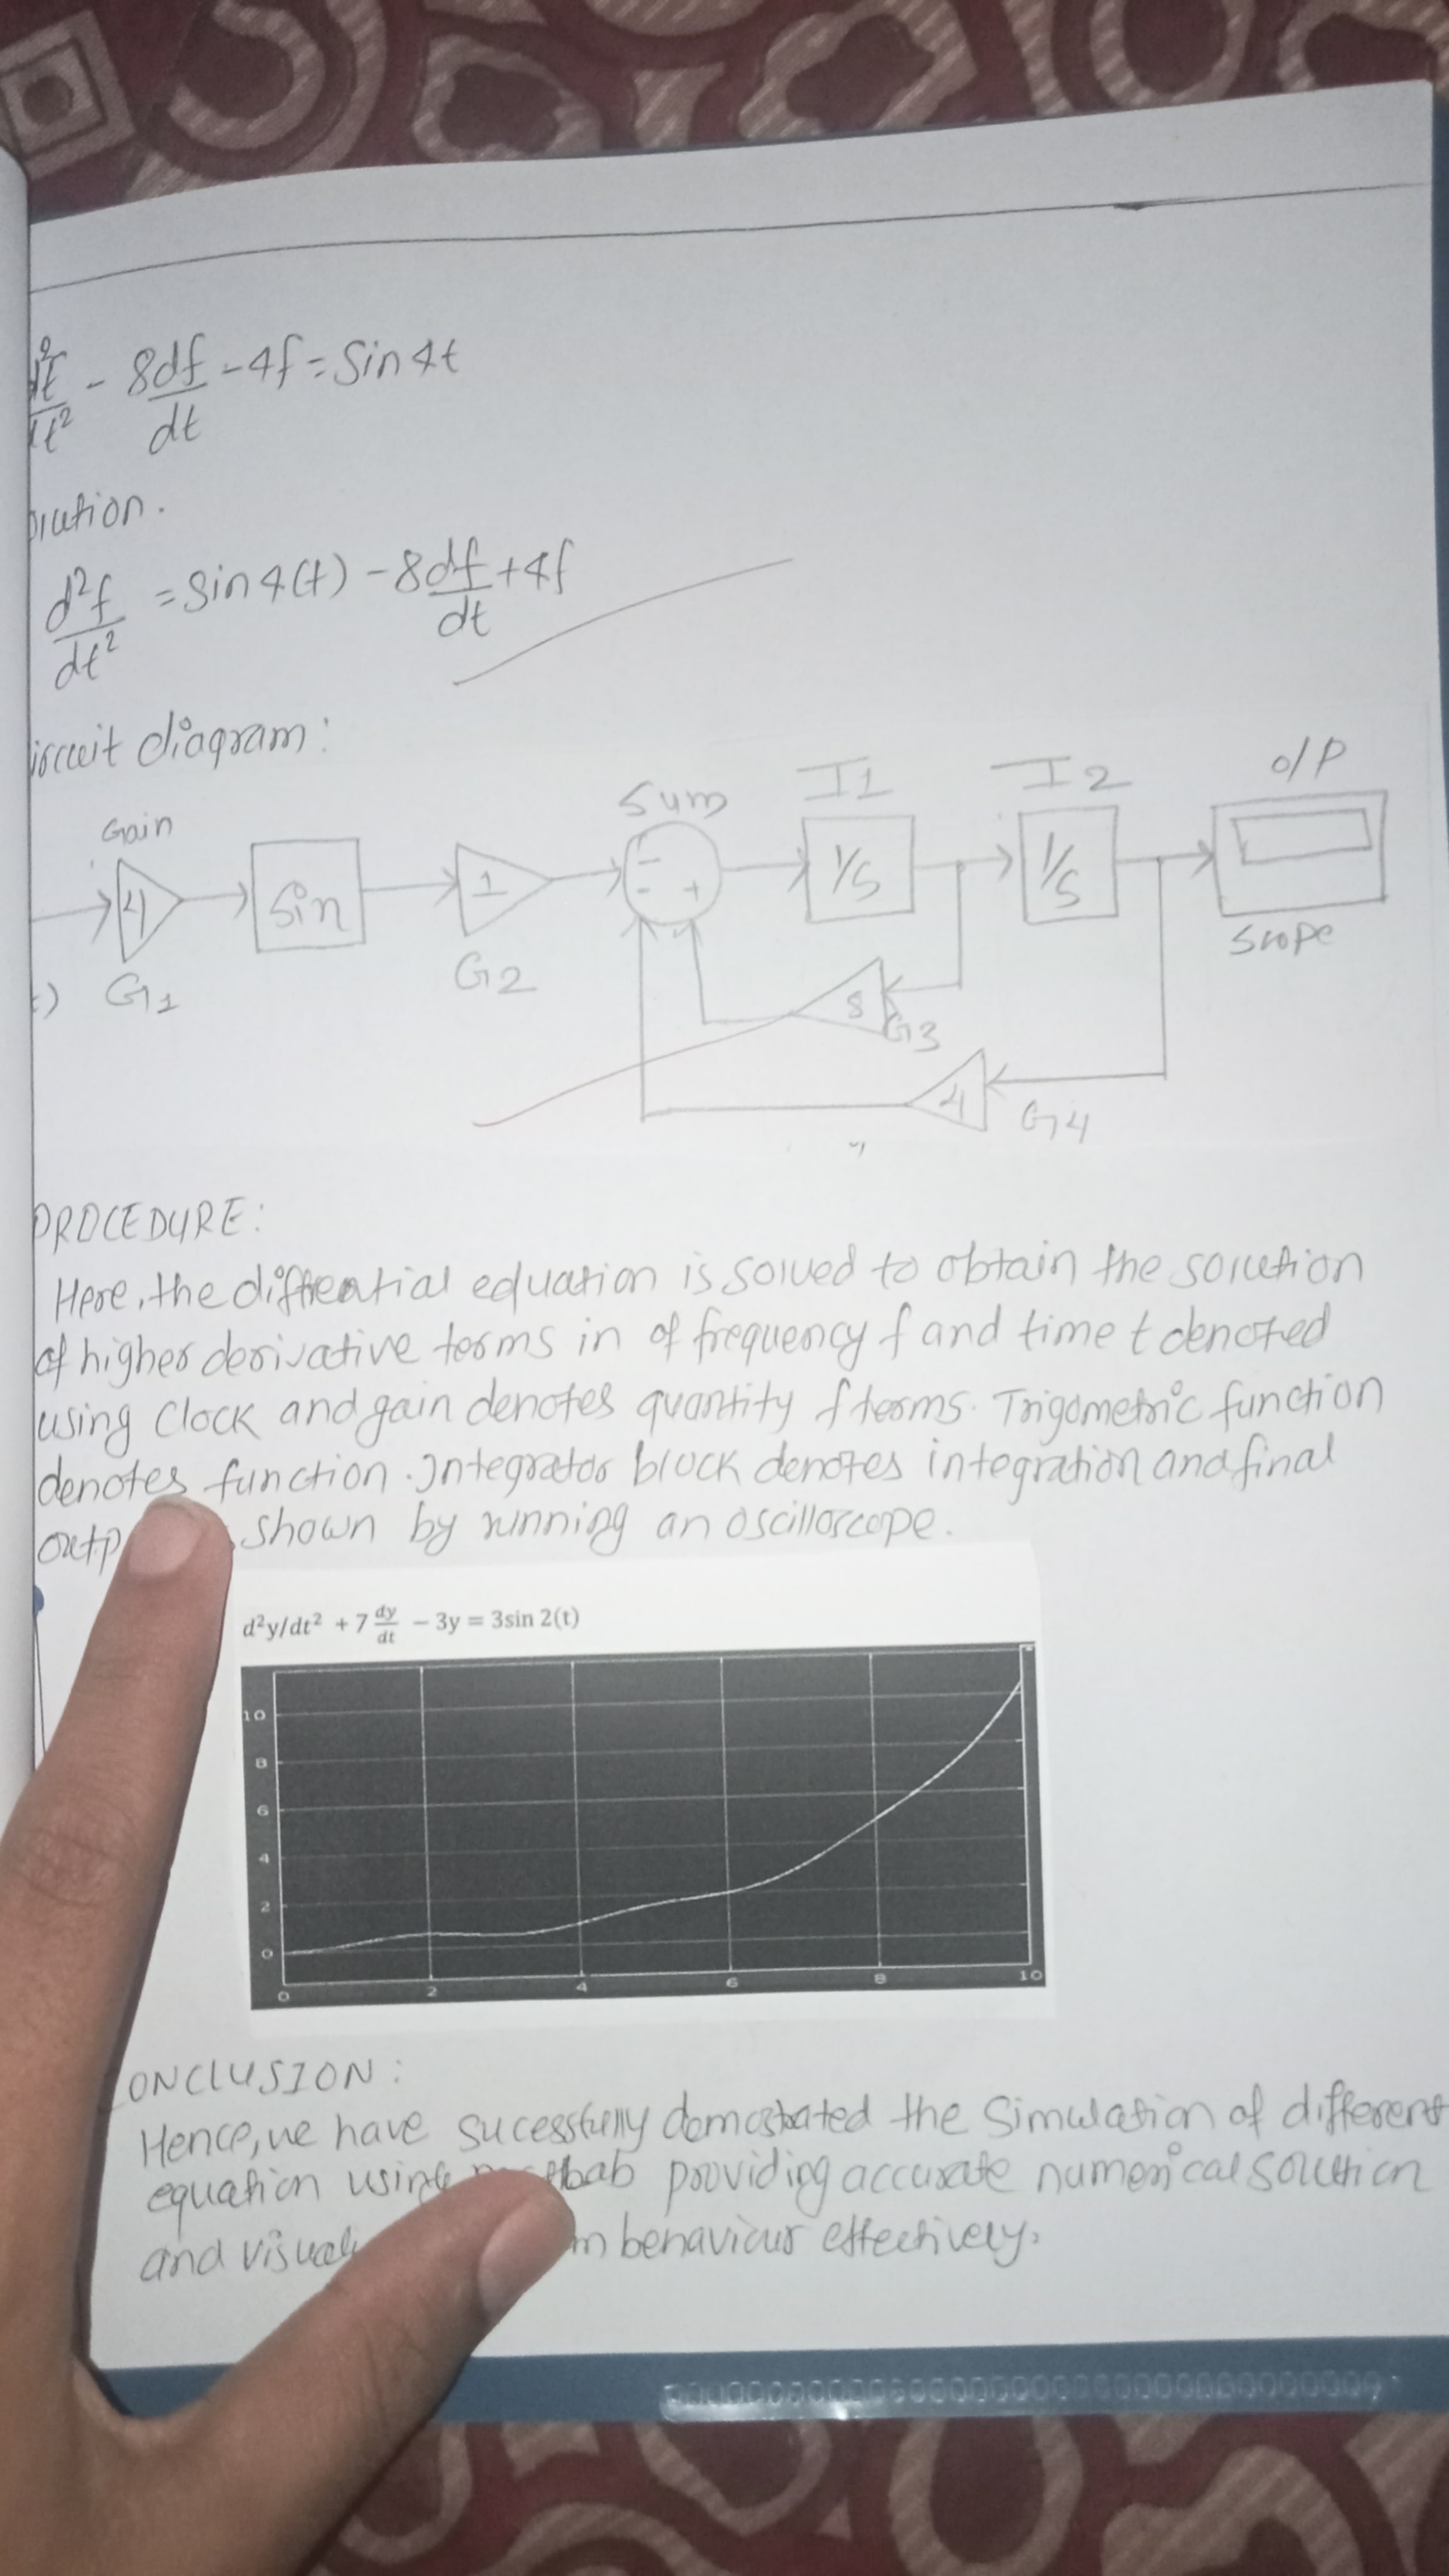 - 8df/dt - 4f = Sin 4t
d²f/dt² = Sin 4(t) - 8df/dt + 4f
diagram:
Gain
Sum
I1
I2
O/P
4
Sin
1
- - +
1/S
1/S
G1
G2
8
G3
Scope
4
G4
PROCEDURE:
Here, the differential equation is solved to obtain the solution
of higher derivative terms in of frequency f and time t denoted
using Clock and gain denotes quantity f terms. Trigometric function
denotes function. Integrator block denotes integration and final
shown by running an oscilloscope.
d²y/dt² + 7 dy/dt − 3y = 3sin 2(t)
10
8
6
4
2
0
0 2 4 6 8 10
ONCLUSION:
Hence, we have sucessfully demostrated the Simulation of different
equation using providing accurate numerical solution
and behaviour effectively.